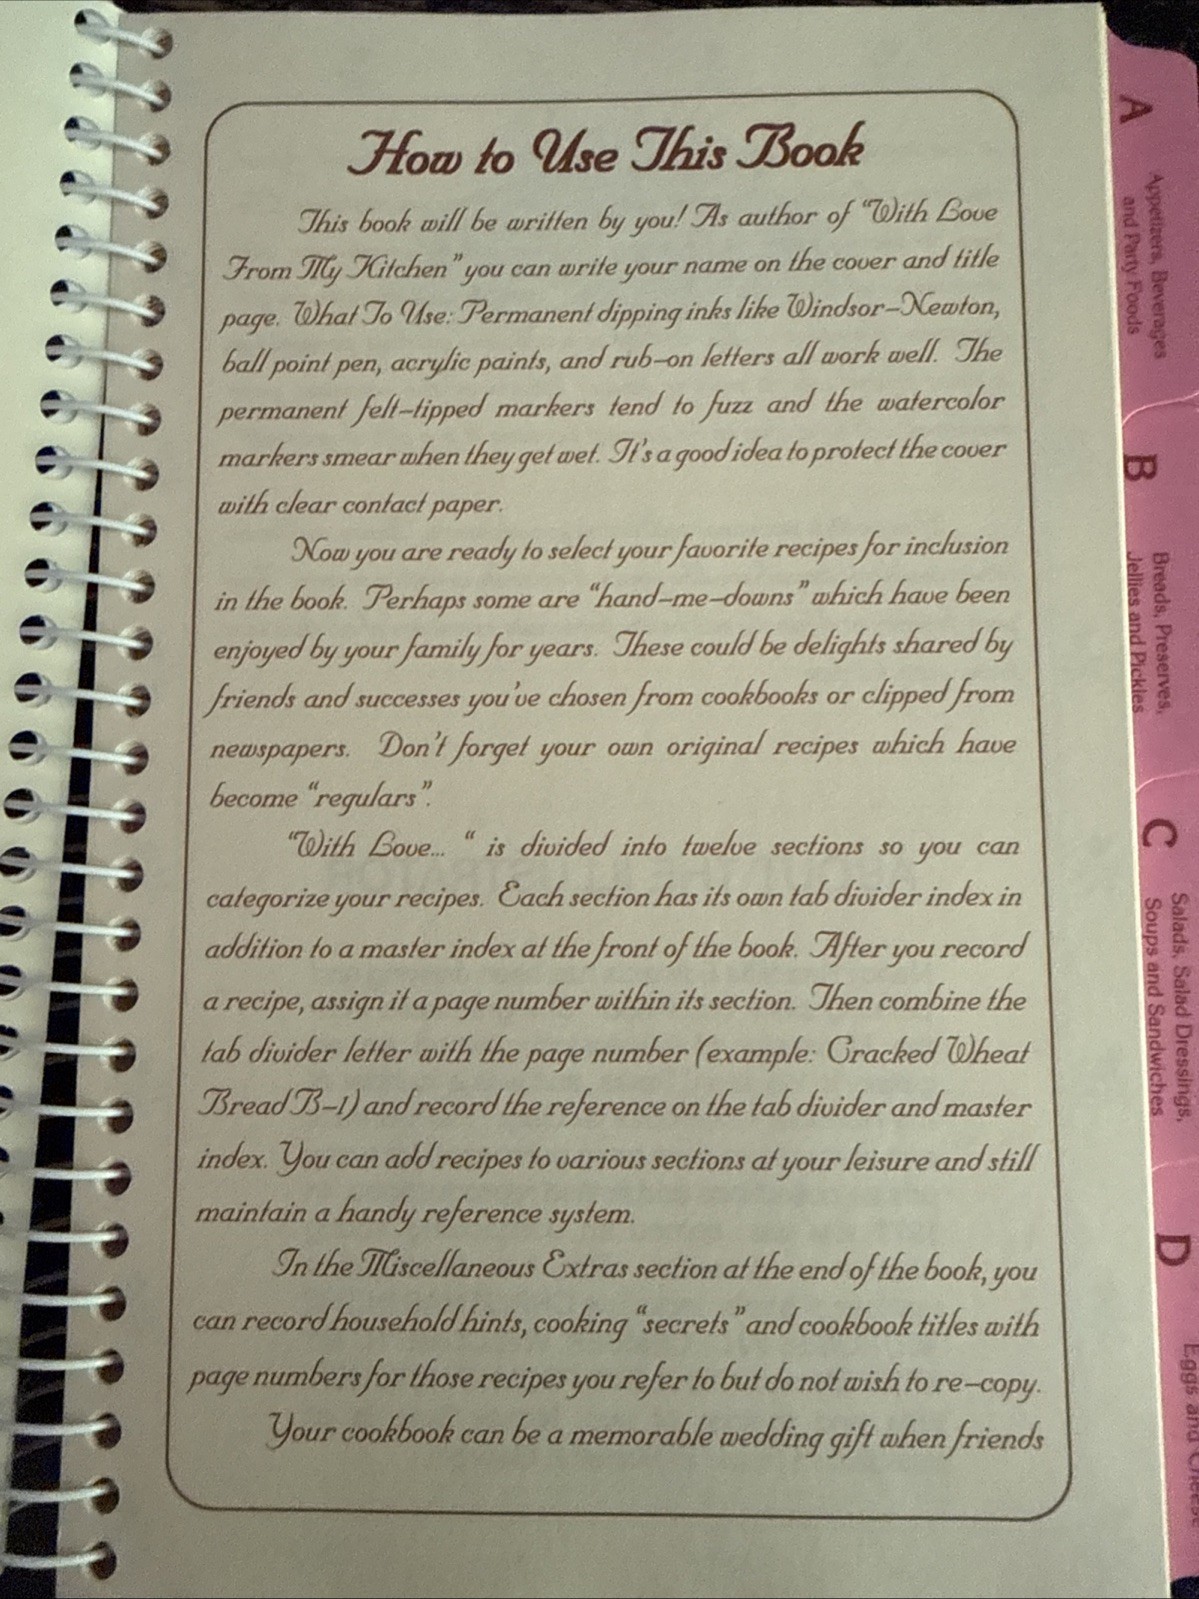 How to Use This Book
This book will be written by you! As author of "With Love
From My Kitchen" you can write your name on the cover and title
page. What To Use: Permanent dipping inks like Windsor-Newton,
ball point pen, acrylic paints, and rub-on letters all work well. The
permanent felt-tipped markers tend to fuzz and the watercolor
markers smear when they get wet. It's a good idea to protect the cover
with clear contact paper.
Now you are ready to select your favorite recipes for inclusion
in the book. Perhaps some are "hand-me-downs" which have been
enjoyed by your family for years. These could be delights shared by
friends and successes you've chosen from cookbooks or clipped from
newspapers. Don't forget your own original recipes which have
become "regulars".
"With Love... " is divided into twelve sections so you can
categorize your recipes. Each section has its own tab divider index in
addition to a master index at the front of the book. After you record
a recipe, assign it a page number within its section. Then combine the
tab divider letter with the page number (example: Cracked Wheat
Bread B-1) and record the reference on the tab divider and master
index. You can add recipes to various sections at your leisure and still
maintain a handy reference system.
In the Miscellaneous Extras section at the end of the book, you
can record household hints, cooking "secrets" and cookbook titles with
page numbers for those recipes you refer to but do not wish to re-copy.
Your cookbook can be a memorable wedding gift when friends
A
Appetizers, Beverages
and Party Foods
B
Breads, Preserves,
Jellies and Pickles
C
Salads, Salad Dressings,
Soups and Sandwiches
D
Eggs and Cheese